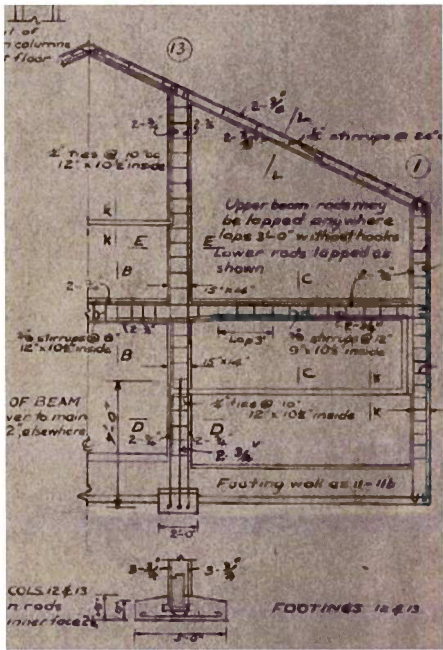 it of
columns
floor
13
2-3/4"
L
2-3/4
2-3/4
stirrups @ 24"
L
1
1/4" ties @ 10"oc
12"x10½ inside
Upper beam rods may
be lapped anywhere
laps 3'-0" without hooks
Lower rods lapped as
shown
K
K
E
E
B
C
15"x14"
B
Lap 3'
stirrups @ 8"
12"x10½ inside
stirrups @ 12"
9"x10½ inside
15"x14"
C
K
K
OF BEAM
ver to main
2", elsewhere
ties @ 10"
12"x10½ inside
D
D
2-3/4" V
Footing wall as 11-11b
2'-0"
3-3/4"
3-3/4"
COLS. 12 & 13
n rods
inner face
FOOTINGS 12 & 13